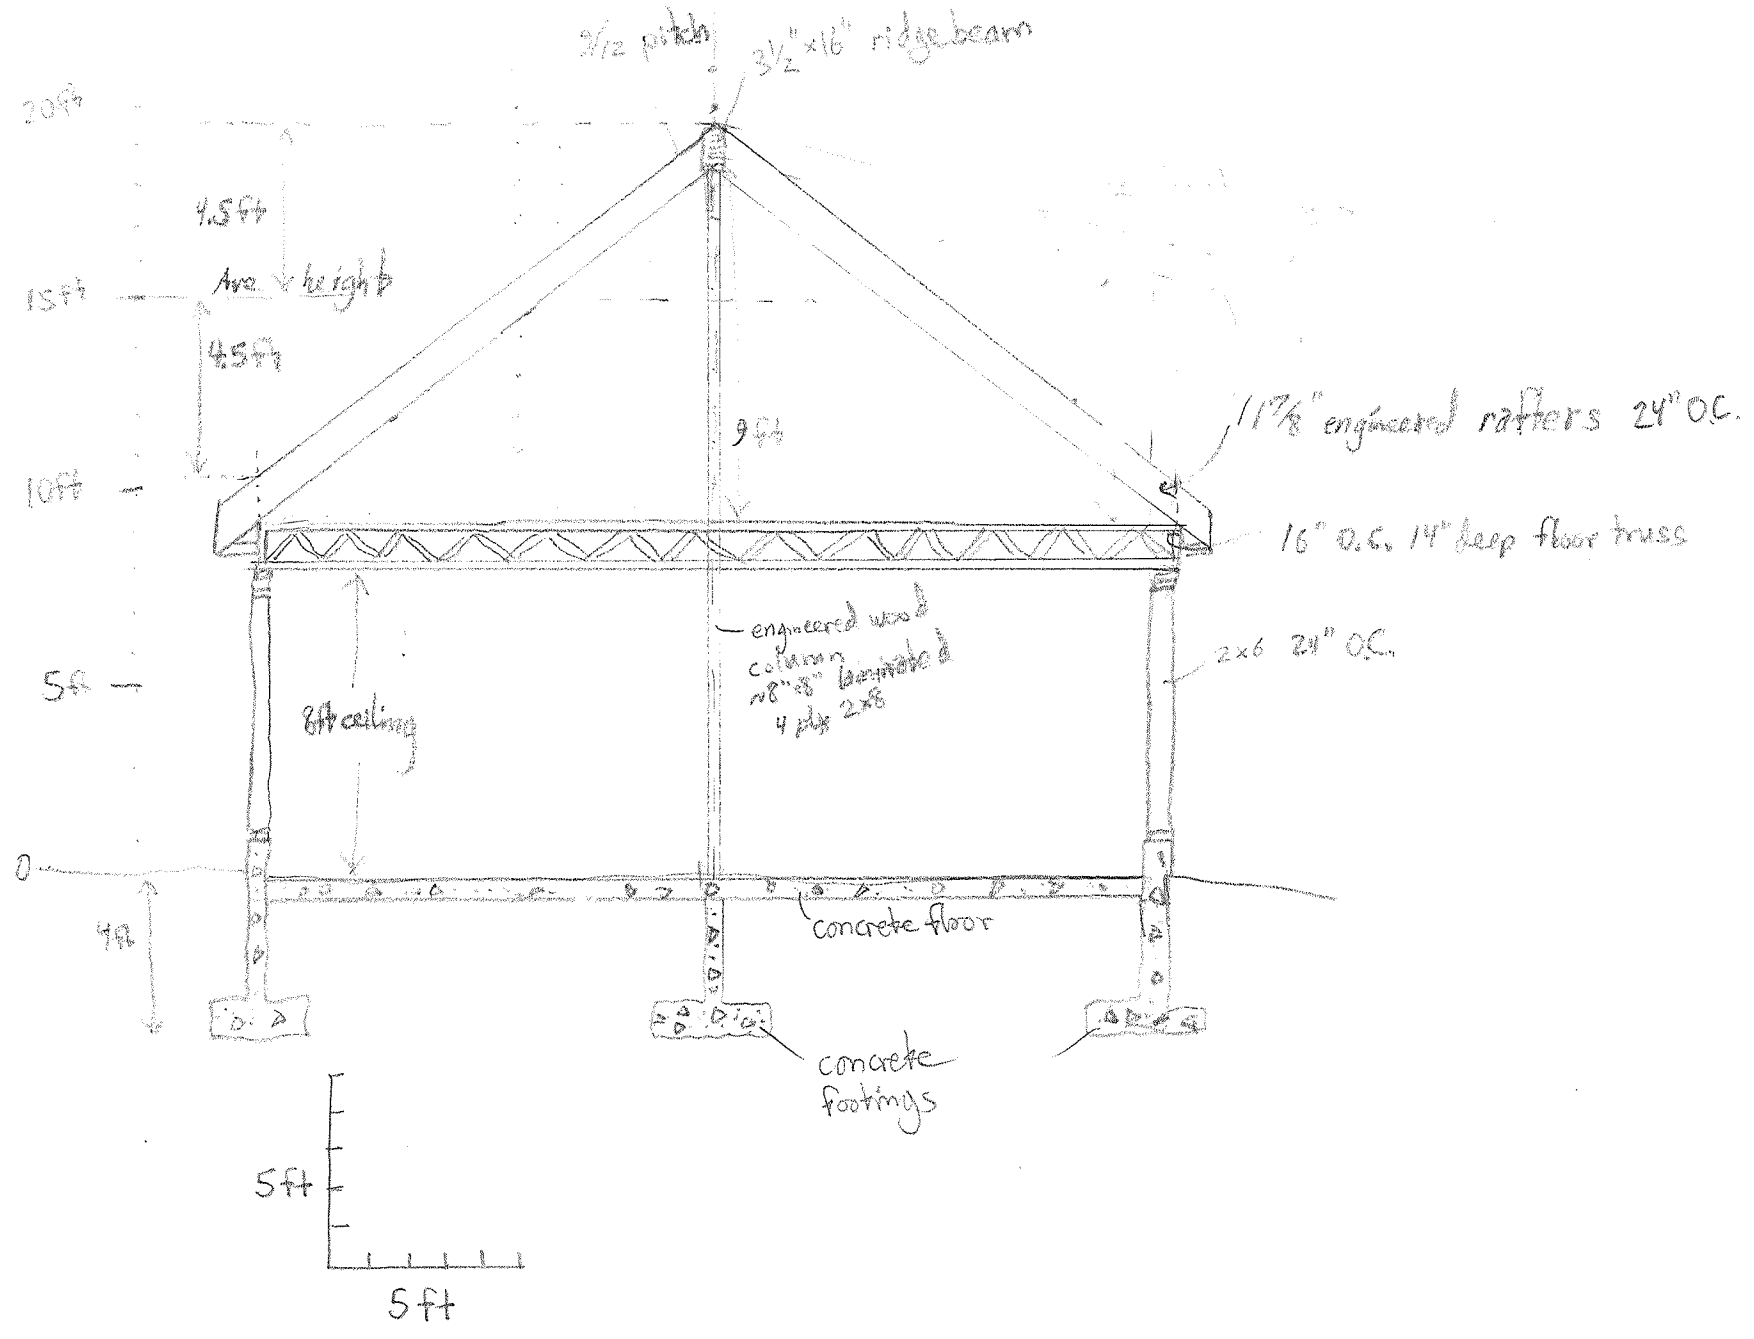 9/12 pitch
3 1/2" x 16" ridge beam
20ft
4.5ft
Ave height
15ft
4.5ft
9ft
11 7/8" engineered rafters 24" O.C.
10ft
16" O.C. 14" deep floor truss
engineered wood
column
~8"x8" laminated
4 ply 2x8
2x6 24" O.C.
5ft
8ft ceiling
0
4ft
concrete floor
concrete
footings
5ft
5ft